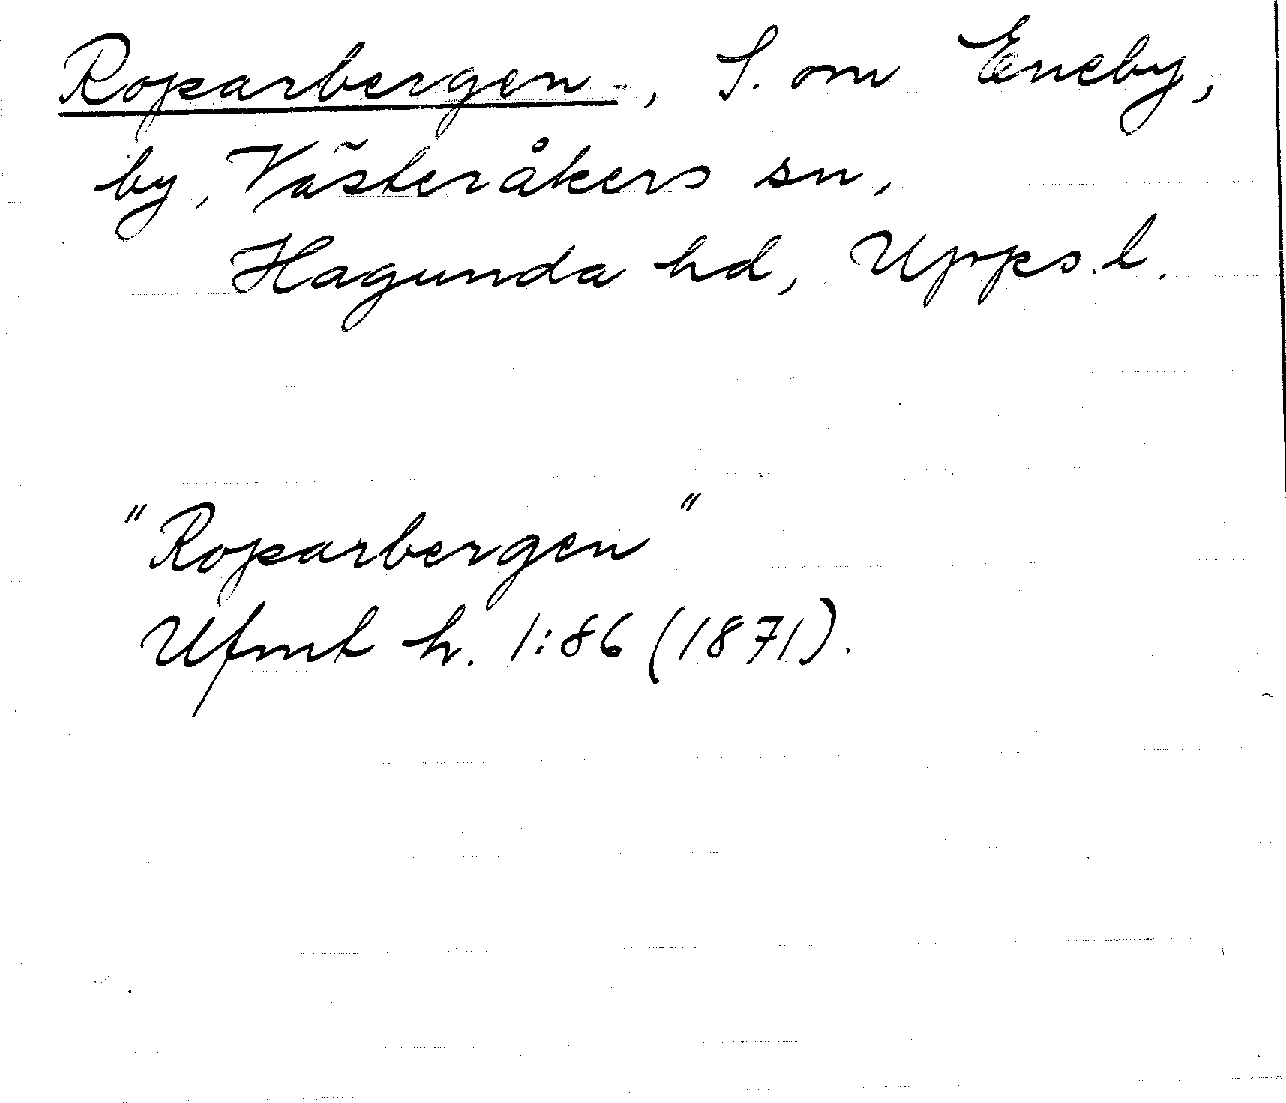 Roparbergen, S. om Eneby,
by, Västeråkers sn,
Hagunda hd, Upps.l.
"Roparbergen"
Ufmt h. 1:86 (1871).